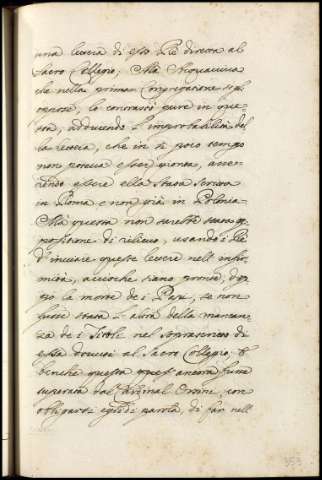 una lettera di esso Rè diretta al
Sacro Collegio; Mà Acquaviva
che nella prima Congregazione si op-
, la contrastò pure in que-
sta, adducendo l'improbabilità del
la lettera, che in sì poco tempo
non poteva esser giunta, accen-
nando essere ella stata scritta
in Roma e non già in Polonia-
Mà questa non sarebbe stata op-
posizione di rilievo, usando i Rè
d'inviare queste lettere nell'infer-
mità, acciochè siano pronte, do-
po la morte de i Papi, se non
fusse stata l'altra della mancan-
za de i Titoli nel soprascritto di
essa dovuti al Sacro Collegio, e
benche questa ancora fusse
superata dal Cardinal Orsini, con
obligarsi egli di parola, di far nell
353